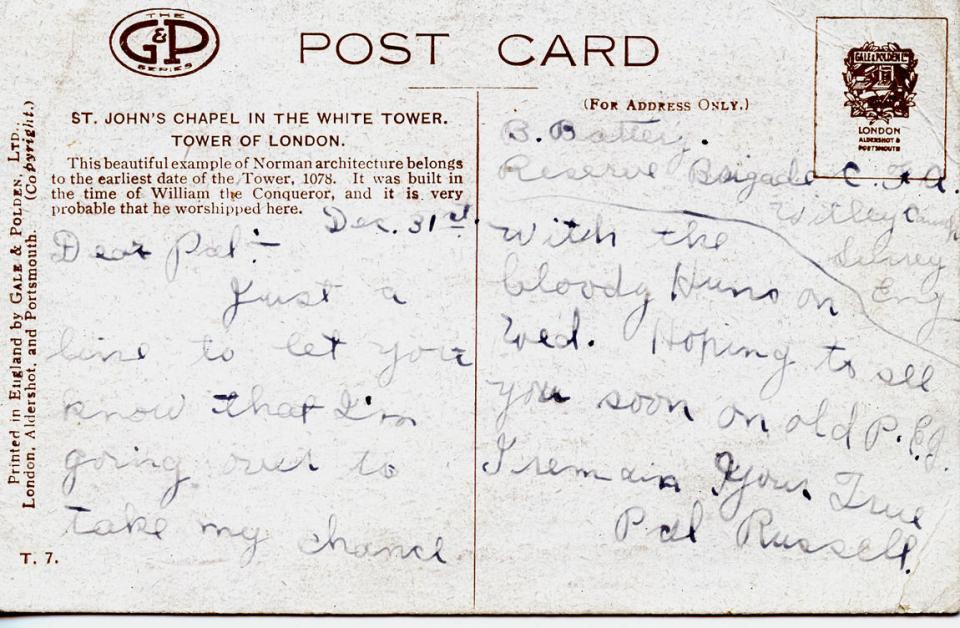 THE
G&P
SERIES
POST CARD
GALE & POLDEN LTD
LONDON
ALDERSHOT &
PORTSMOUTH
ST. JOHN'S CHAPEL IN THE WHITE TOWER.
TOWER OF LONDON.
This beautiful example of Norman architecture belongs
to the earliest date of the Tower, 1078. It was built in
the time of William the Conqueror, and it is very
probable that he worshipped here.
Printed in England by GALE & POLDEN, LTD.,
London, Aldershot, and Portsmouth. (Copyright.)
Dec. 31st.
Dear Pal:-
Just a
line to let you
know that I'm
going over to
take my chance
T. 7.
(FOR ADDRESS ONLY.)
B. Battery.
Reserve Brigade C.F.A.
Witley Camp
Eng
with the
bloody Huns on
Wed. Hoping to see
you soon on old P.E.I.
I remain Your True
Pal Russell.